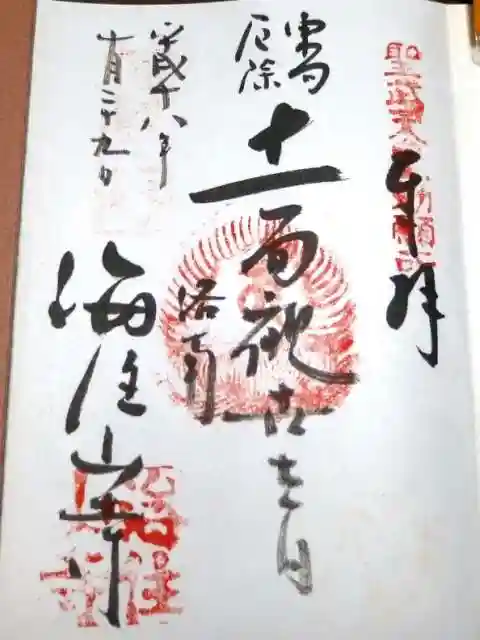 聖武天皇勅願所
奉拝
出世
厄除
十一面観世音
洛南
海住山寺
平成十八年
十一月二十九日